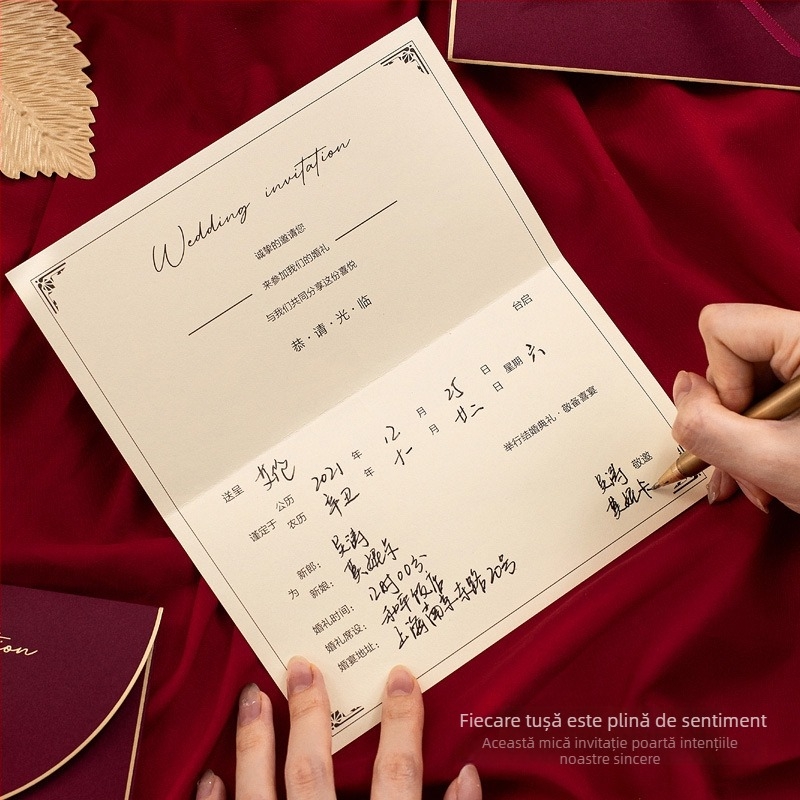 Wedding invitation
诚挚的邀请您
来参加我们的婚礼
与我们共同分享这份喜悦
恭·请·光·临
送呈 台启
谨定于 公历 2021 年 12 月 25 日 星期 六
农历 辛丑 年 十一 月 廿二 日
举行结婚典礼·敬备喜宴
为 新郎: 吴涛
新娘: 夏妮卡
敬邀 吴涛
夏妮卡
婚礼时间: 12时00分
婚礼席设: 和平饭店
婚宴地址: 上海南京东路20号
tion
Fiecare tușă este plină de sentiment
Această mică invitație poartă intențiile
noastre sincere